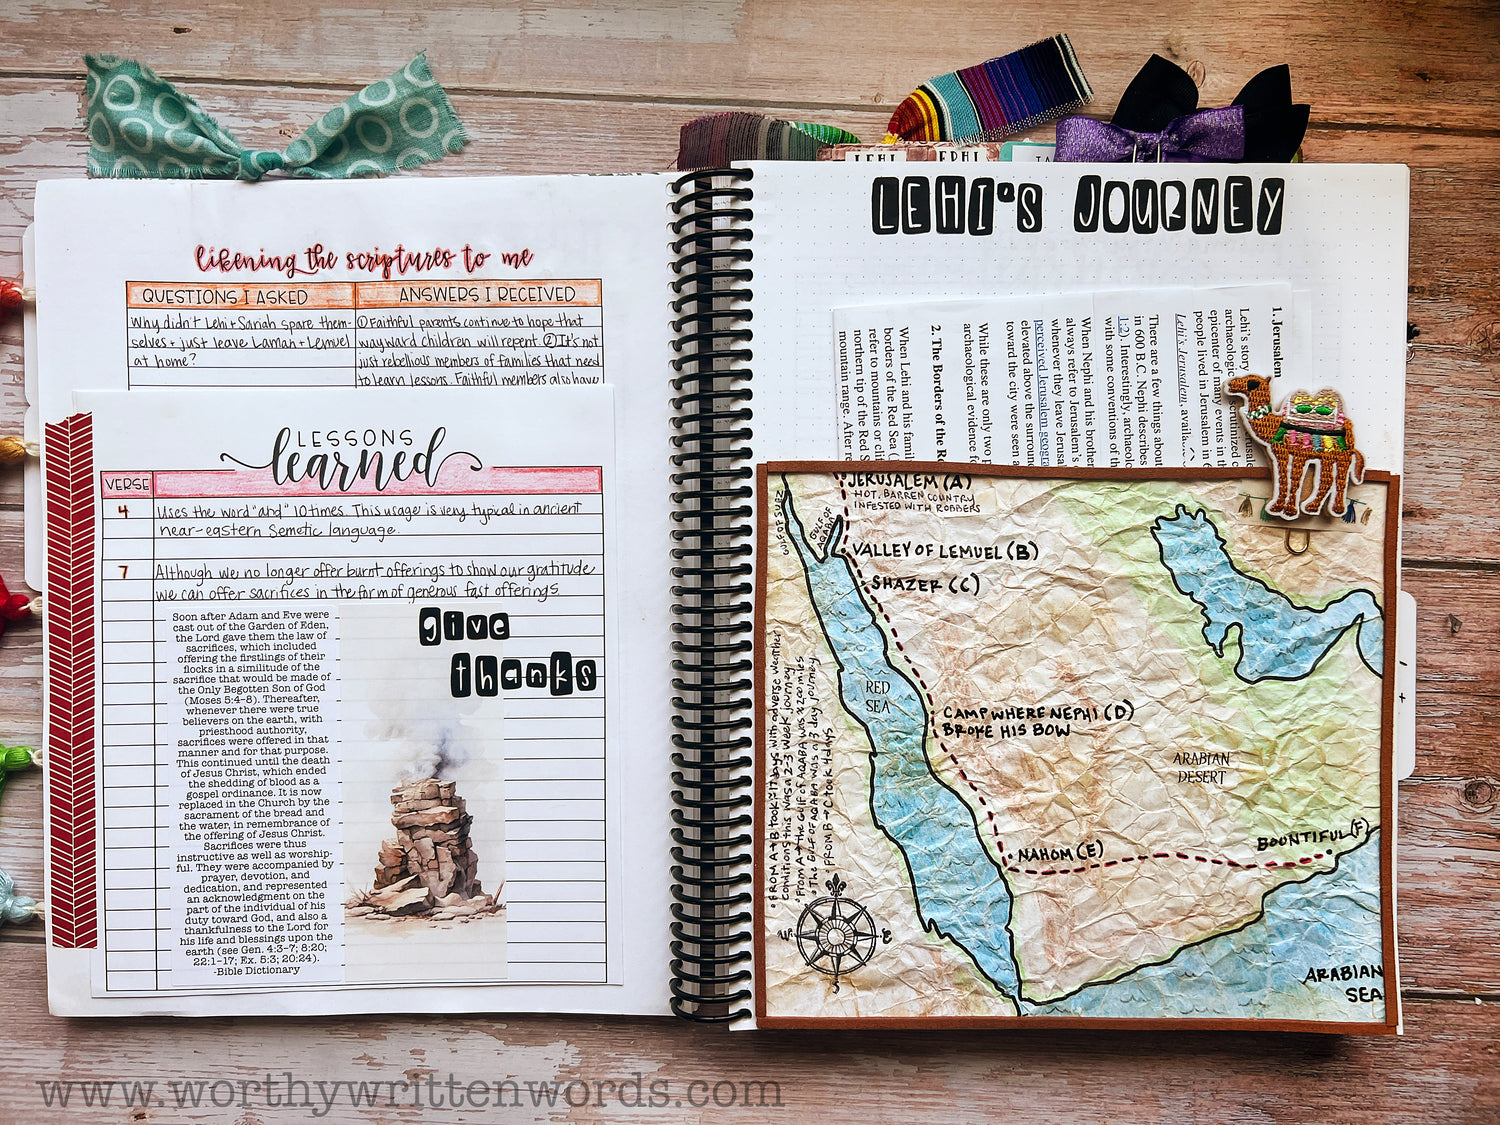 likening the scriptures to me
QUESTIONS I ASKED
ANSWERS I RECEIVED
Why didn't Lehi + Sariah spare them-
selves + just leave Laman + Lemuel
at home?
① Faithful parents continue to hope that
wayward children will repent. ② It's not
just rebellious members of families that need
to learn lessons. Faithful members also have
LESSONS
learned
VERSE
4
Uses the word "and" 10 times. This usage is very typical in ancient
near-eastern Semetic language.
7
Although we no longer offer burnt offerings to show our gratitude
we can offer sacrifices in the form of generous fast offerings.
Soon after Adam and Eve were
cast out of the Garden of Eden,
the Lord gave them the law of
sacrifices, which included
offering the firstlings of their
flocks in a similitude of the
sacrifice that would be made of
the Only Begotten Son of God
(Moses 5:4-8). Thereafter,
whenever there were true
believers on the earth, with
priesthood authority,
sacrifices were offered in that
manner and for that purpose.
This continued until the death
of Jesus Christ, which ended
the shedding of blood as a
gospel ordinance. It is now
replaced in the Church by the
sacrament of the bread and
the water, in remembrance of
the offering of Jesus Christ.
Sacrifices were thus
instructive as well as worship-
ful. They were accompanied by
prayer, devotion, and
dedication, and represented
an acknowledgment on the
part of the individual of his
duty toward God, and also a
thankfulness to the Lord for
his life and blessings upon the
earth (see Gen. 4:3-7; 8:20;
22:1-17; Ex. 5:3; 20:24).
-Bible Dictionary
give
thanks
LEHI
LEHI'S JOURNEY
1. Jerusalem
Lehi's story
archaeologic
epicenter of many events in the
people lived in Jerusalem in 6
Lehi's Jerusalem, availa
There are a few things about
in 600 B.C. Nephi describes
1-2). Interestingly, archaeolo
with some conventions of
When Nephi and his brothe
always refer to Jerusalem's
whenever they leave Jerusa
perceived Jerusalem geogra
elevated above the surroun
toward the city were seen a
While these are only two p
archaeological evidence fo
2. The Borders of the R
When Lehi and his famil
borders of the Red Sea (
refer to mountains or cli
northern tip of the Red S
mountain range. After re
JERUSALEM (A)
HOT, BARREN COUNTRY
INFESTED WITH ROBBERS
GULF OF SUEZ
GULF OF
AQABA
VALLEY OF LEMUEL (B)
SHAZER (C)
RED
SEA
CAMP WHERE NEPHI (D)
BROKE HIS BOW
ARABIAN
DESERT
NAHOM (E)
BOUNTIFUL (F)
ARABIAN
SEA
• FROM A→B took 17 days with adverse weather
conditions this was a 2-3 week journey
• FROM A→the GULF of AQABA was 200 miles
• The GULF of AQABA was a 3 day journey
• FROM B→C took 4 days
N
W
E
S
www.worthywrittenwords.com